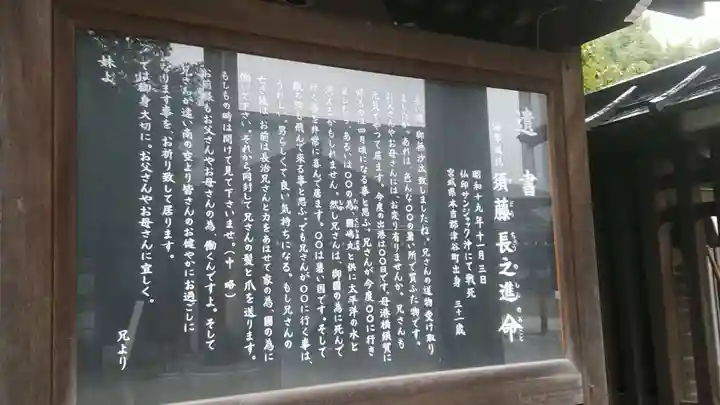 遺書
須藤長之進命
昭和十九年十一月三日
仏印サンジャック沖にて戦死
宮城県本吉郡津谷町出身 三十一歳
御無沙汰致しましたね。兄さんの送物受け取り
ましたか。あれは、色んな〇〇の暑い所で買ふた物です。
お父さんやお母さんには、お変り有りませんか。兄さんも
元気で戻つて居ます。今度の出港は〇〇日です。母港横須賀に
帰るのは四月頃になる事と思ふ。兄さんが今度〇〇に行き
ましたら、あるいは〇〇の為、国嶋丸と供に太平洋の水と
消えるかもしれません。然し兄さんは、御国の為に死んで
行く事を非常に喜んで居ます。〇〇は暑い国です。そして
敵も飛んで来る事と思ふ。でも兄さんが〇〇に行く事は、
うれしく、男らしくて良い気持ちになる。もし兄さんの
亡き後は、お前は長治兄さんと力をあはせて家の為、国の為に
働いて下さい。それから同封して兄さんの髪と爪を送ります。
もしもの時は開けて見て下さいませ。(中略)
お前様もお父さんやお母さんの為、働くんですよ。そして
兄さんが遠い南の空より皆さんのお健やかにお過ごしに
なります事を、お祈り致して居ります。
では御身大切に。お父さんやお母さんに宜しく。
兄より
妹よ